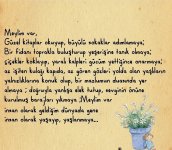 Meylim var,
Güzel kitaplar okuyup, büyülü sokaklar adımlamaya;
Bir fidanı toprakla buluşturup yeşerişine tanık olmaya;
çiçekler koklayıp, yaralı kalpleri gücüm yettiğince onarmaya;
az işiten kulağı kapıda, az gören gözleri yolda olan yaşlıların
yalnızlıklarına konuk olup, bir mazlumun duasında yer
almaya ; doğruyla yanlışa elek tutup, sevginin önüne
kurulmuş barajları yıkmaya ;Meylim var
insan olarak geldiğim dünyada
insan olarak yaşayıp, yaşlanmaya...